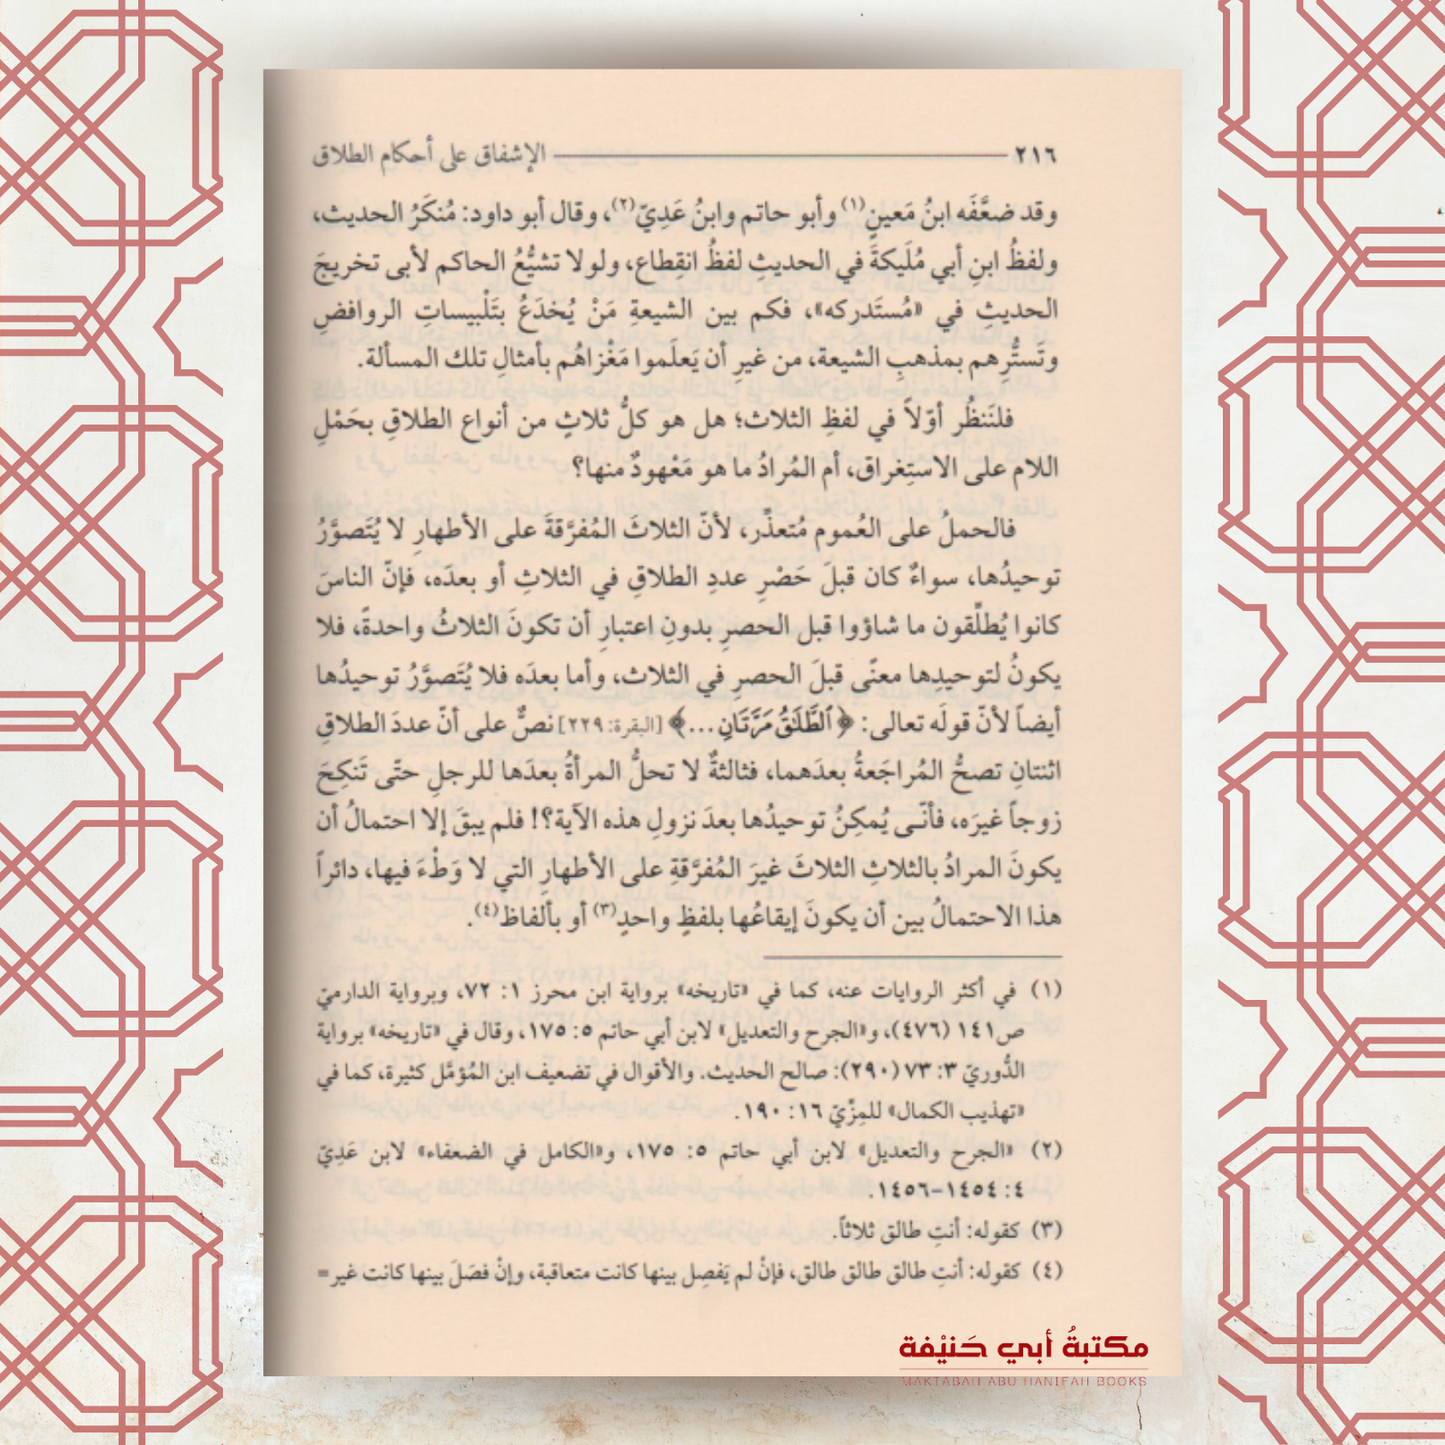 ٢١٦ الإشفاق على أحكام الطلاق
وقد ضعَّفَه ابنُ مَعينٍ(١) وأبو حاتم وابنُ عَدِيّ(٢)، وقال أبو داود: مُنكَرُ الحديث،
ولفظُ ابنِ أبي مُلَيكةَ في الحديثِ لفظُ انقِطاع، ولولا تشيُّعُ الحاكم لأبى تخريجَ
الحديثِ في «مُستَدركه»، فكم بين الشيعةِ مَنْ يُخدَعُ بتَلْبيساتِ الروافضِ
وتَستُّرِهم بمذهبِ الشيعة، من غيرِ أن يَعلَموا مَغْزاهُم بأمثالِ تلك المسألة.
فلنَنظُر أوّلاً في لفظِ الثلاث؛ هل هو كلُّ ثلاثٍ من أنواع الطلاقِ بحَمْلِ
اللام على الاستِغراق، أم المُرادُ ما هو مَعْهودٌ منها؟
فالحملُ على العُموم مُتعذِّر، لأنّ الثلاثَ المُفرَّقةَ على الأطهارِ لا يُتَصوَّرُ
توحيدُها، سواءٌ كان قبلَ حَصْرِ عددِ الطلاقِ في الثلاثِ أو بعدَه، فإنّ الناسَ
كانوا يُطلِّقون ما شاؤوا قبل الحصرِ بدونِ اعتبارِ أن تكونَ الثلاثُ واحدةً، فلا
يكونُ لتوحيدِها معنًى قبلَ الحصرِ في الثلاث، وأما بعدَه فلا يُتَصوَّرُ توحيدُها
أيضاً لأنّ قولَه تعالى: ﴿ٱلطَّلَٰقُ مَرَّتَانِ...﴾ [البقرة: ٢٢٩] نصٌّ على أنّ عددَ الطلاقِ
اثنتانِ تصحُّ المُراجَعةُ بعدَهما، فثالثةٌ لا تحلُّ المرأةُ بعدَها للرجلِ حتّى تَنكِحَ
زوجاً غيرَه، فأنّـى يُمكِنُ توحيدُها بعدَ نزولِ هذه الآية؟! فلم يبقَ إلا احتمالُ أن
يكونَ المرادُ بالثلاثِ الثلاثَ غيرَ المُفرَّقةِ على الأطهارِ التي لا وَطْءَ فيها، دائراً
هذا الاحتمالُ بين أن يكونَ إيقاعُها بلفظٍ واحدٍ(٣) أو بألفاظ(٤).
(١) في أكثر الروايات عنه، كما في «تاريخه» برواية ابن محرز ١: ٧٢، وبرواية الدارميّ
ص١٤١ (٤٧٦)، و«الجرح والتعديل» لابن أبي حاتم ٥: ١٧٥، وقال في «تاريخه» برواية
الدُّوريّ ٣: ٧٣ (٢٩٠): صالح الحديث. والأقوال في تضعيف ابن المُؤمَّل كثيرة، كما في
«تهذيب الكمال» للمِزّيّ ١٦: ١٩٠.
(٢) «الجرح والتعديل» لابن أبي حاتم ٥: ١٧٥، و«الكامل في الضعفاء» لابن عَدِيّ
٤: ١٤٥٤-١٤٥٦.
(٣) كقوله: أنتِ طالق ثلاثاً.
(٤) كقوله: أنتِ طالق طالق طالق، فإنْ لم يَفصِل بينها كانت متعاقبة، وإنْ فصَلَ بينها كانت غير=
مكتبةُ أبي حَنيْفة
MAKTABAH ABU HANIFAH BOOKS